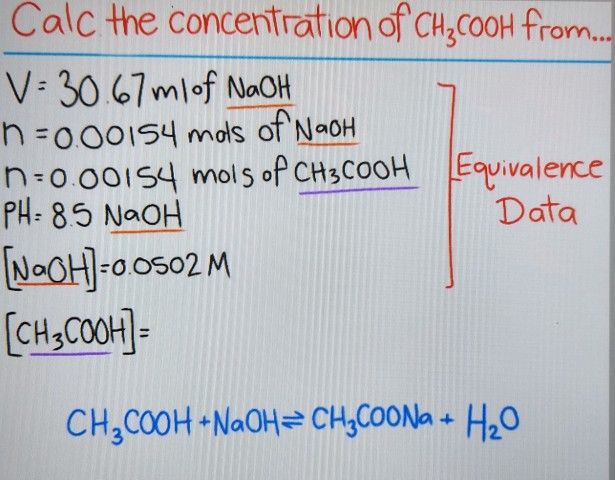 Calc the concentration of CH₃COOH from...
V = 30.67 ml of NaOH
n = 0.00154 mols of NaOH
n = 0.00154 mols of CH₃COOH
PH = 8.5 NaOH
[NaOH] = 0.0502 M
[CH₃COOH] =
Equivalence
Data
CH₃COOH + NaOH ⇌ CH₃COONa + H₂O